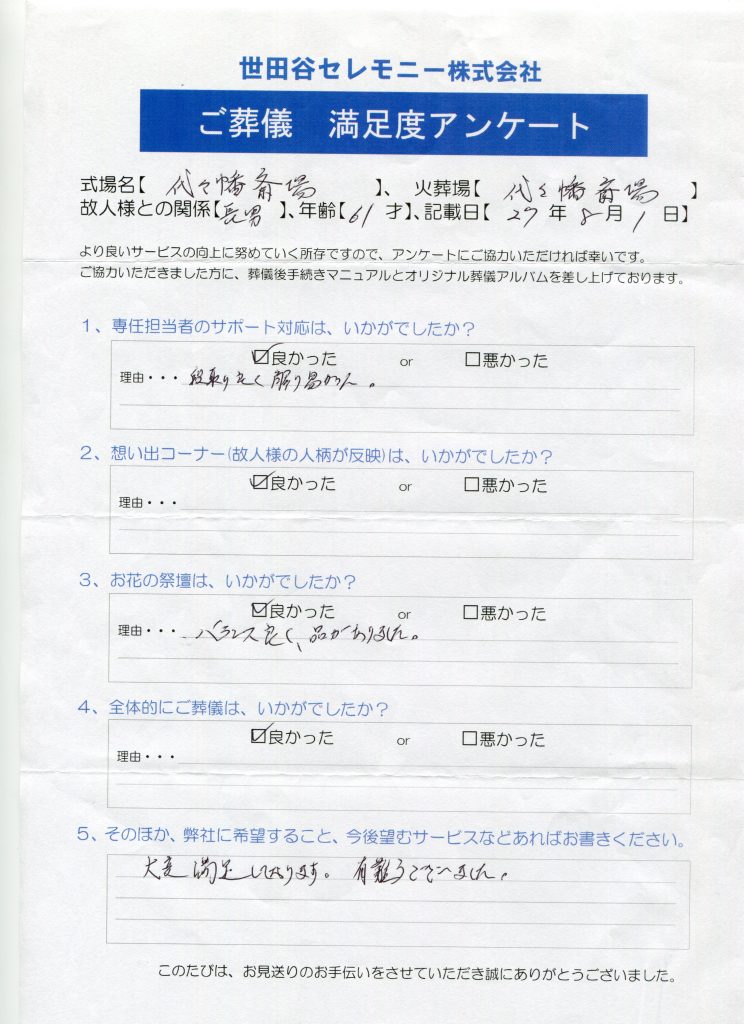 世田谷セレモニー株式会社
ご葬儀　満足度アンケート
式場名【 代々幡斎場 】、火葬場【 代々幡斎場 】
故人様との関係【長男】、年齢【61 才】、記載日【 27 年 8 月 1 日】
より良いサービスの向上に努めていく所存ですので、アンケートにご協力いただければ幸いです。
ご協力いただきました方に、葬儀後手続きマニュアルとオリジナル葬儀アルバムを差し上げております。
1、専任担当者のサポート対応は、いかがでしたか？
☑良かった or □悪かった
理由・・・ 段取り良く
2、想い出コーナー(故人様の人柄が反映)は、いかがでしたか？
☑良かった or □悪かった
理由・・・
3、お花の祭壇は、いかがでしたか？
☑良かった or □悪かった
理由・・・ バランス良く、品がありました。
4、全体的にご葬儀は、いかがでしたか？
☑良かった or □悪かった
理由・・・
5、そのほか、弊社に希望すること、今後望むサービスなどあればお書きください。
大変満足しております。有難うございました。
このたびは、お見送りのお手伝いをさせていただき誠にありがとうございました。